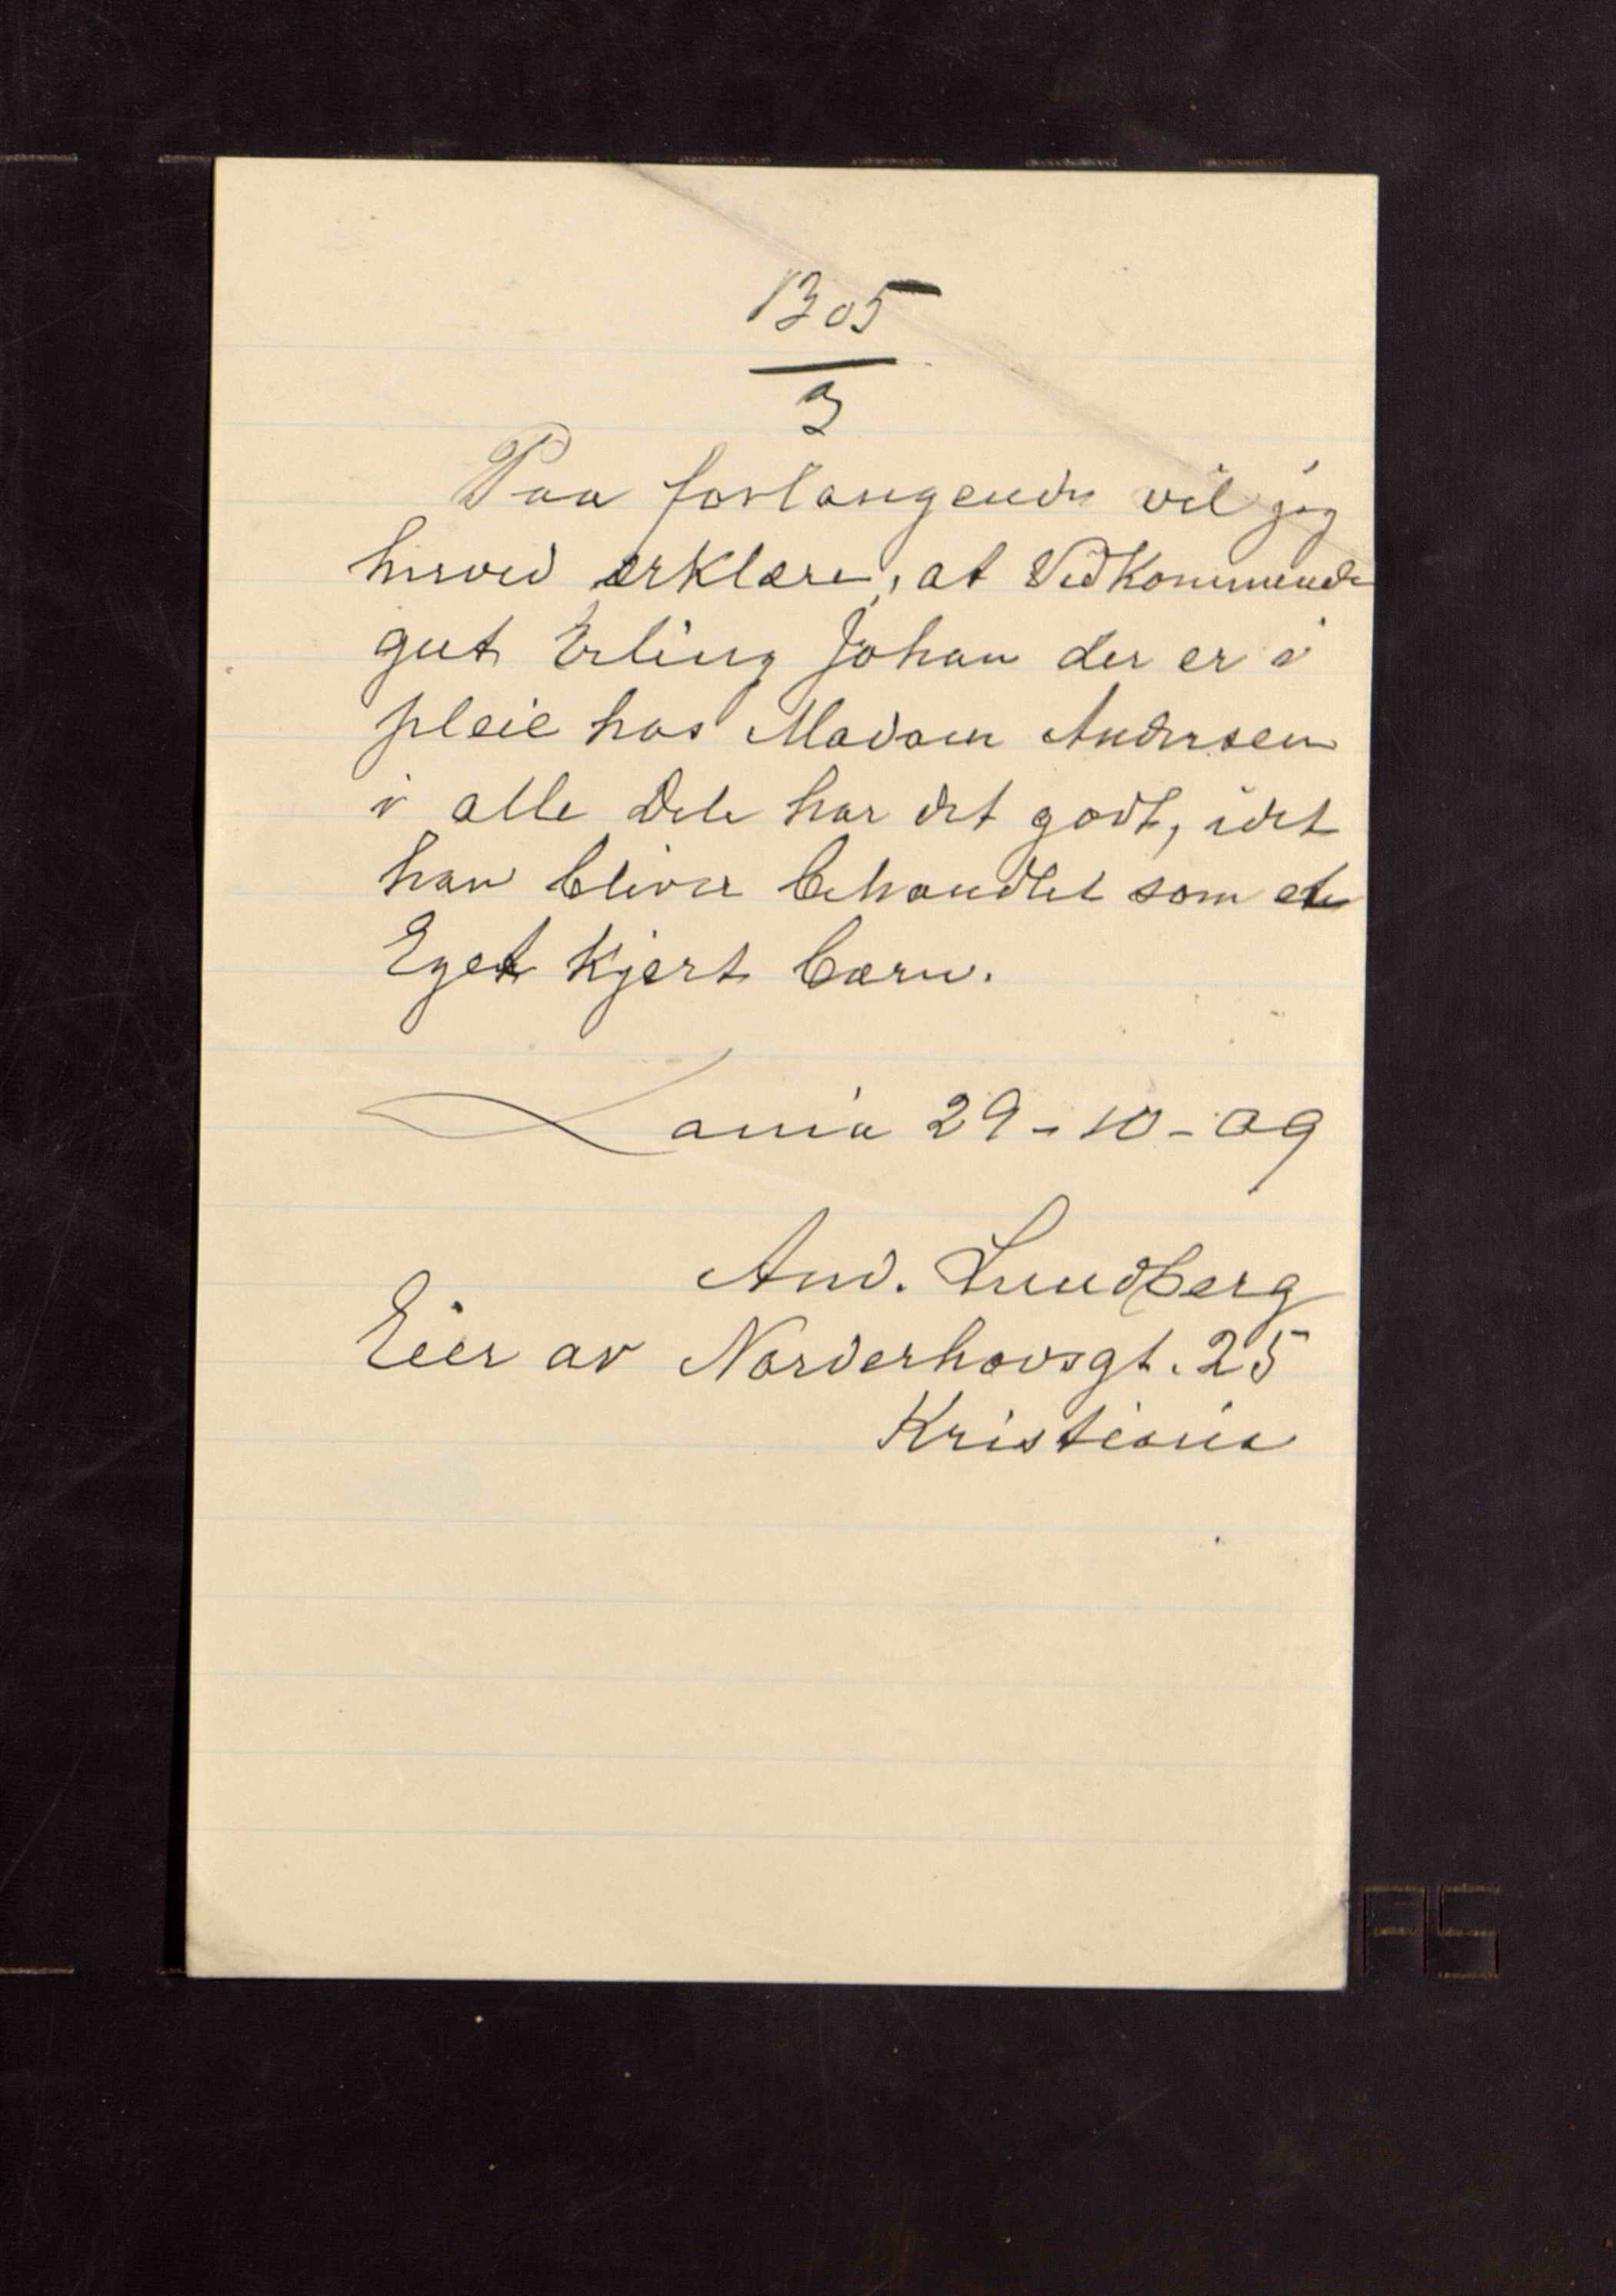 1305
3
Paa forlangende vil jeg
herved ærklære, at Vedkommende
gut Erling Johan der er i
pleie hos Madam Andersen
i alle Dele har det godt, idet
han bliver behandlet som et
Eget kjært barn.
ania 29-10-09
And. Lundberg
Eier av Norderhovsgt. 25
Kristiania